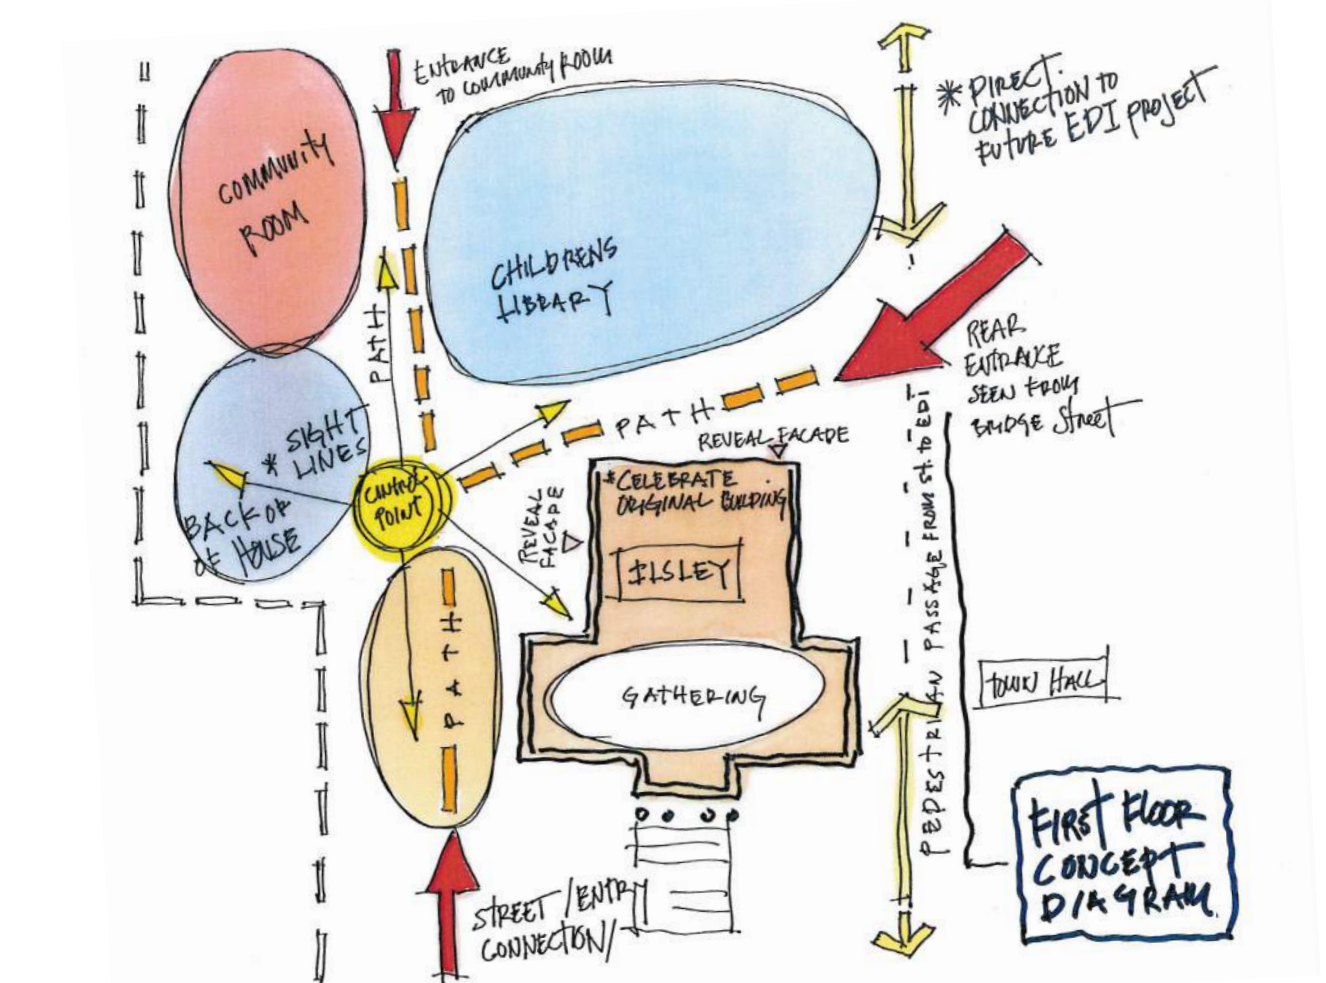 ENTRANCE
TO COMMUNITY ROOM
* DIRECT
CONNECTION TO
FUTURE EDI PROJECT
COMMUNITY
ROOM
CHILDRENS
LIBRARY
PATH
REAR
ENTRANCE
SEEN FROM
BRIDGE STREET
* SIGHT
LINES
PATH
REVEAL FACADE
CONTROL
POINT
BACK OF
OF HOUSE
REVEAL
FACADE
* CELEBRATE
ORIGINAL BUILDING
ILSLEY
PATH
GATHERING
PEDESTRIAN PASSAGE FROM ST. TO EDI
TOWN HALL
STREET / ENTRY
CONNECTION /
FIRST FLOOR
CONCEPT
DIAGRAM